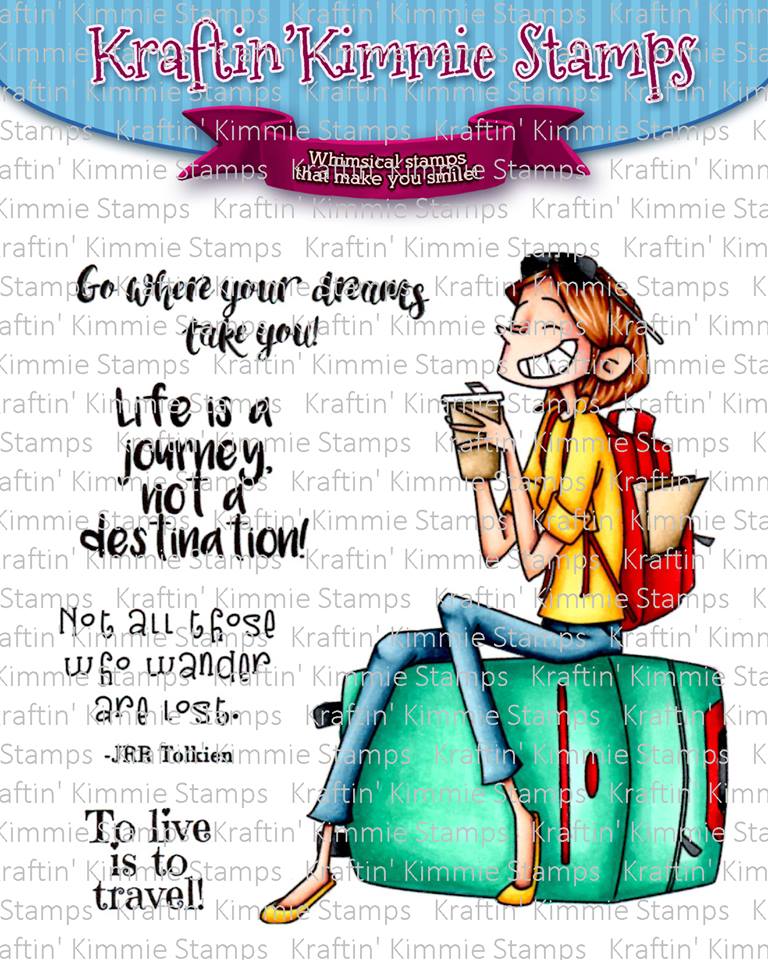 Kraftin' Kimmie Stamps
Whimsical stamps
that make you smile!
Go where your dreams
take you!
Life is a
journey,
not a
destination!
Not all those
who wander
are lost.
-JRR Tolkien
To live
is to
travel!
Kraftin' Kimmie Stamps